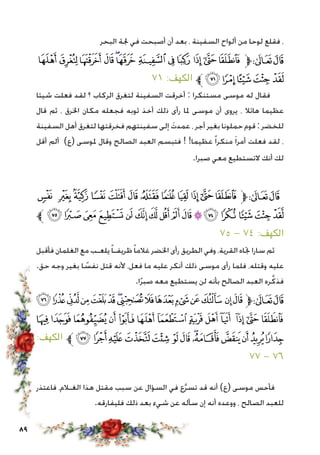 ، فقلع لوحا من ألواح السفينة ، بعد أن أصبحت في لجّة البحر
قَالَ تَعَالَىٰ: ﴿ فَٱنطَلَقَا حَتَّىٰٓ إِذَا رَكِبَا فِي ٱلسَّفِينَةِ خَرَقَهَا ۖ قَالَ أَخَرَقْتَهَا لِتُغْرِقَ أَهْلَهَا
لَقَدْ جِئْتَ شَيْـًٔا إِمْرًا ۝٧١ ﴾ الكهف: ٧١
فقال له موسى مستنكرا : أخرقت السفينة لتغرق الركاب ؟ لقد فعلت شيئا
عظيما هائلا ، يروى أن موسى لما رأى ذلك أخذ ثوبه فجعله مكان الخرق ، ثم قال
للخضر : قوم حملونا بغير أجر، عمدت إلى سفينتهم فخرقتها لتغرق أهل السفينة
، لقد فعلت أمراً منكراً عظيما! ! فتبسم العبد الصالح وقال لموسى (ع) ألم أقل
لك أنك لاتستطيع معي صبرا.
قَالَ تَعَالَىٰ: ﴿ فَٱنطَلَقَا حَتَّىٰٓ إِذَا لَقِيَا غُلَٰمًا فَقَتَلَهُۥ قَالَ أَقَتَلْتَ نَفْسًا زَكِيَّةًۢ بِغَيْرِ نَفْسٍ
لَّقَدْ جِئْتَ شَيْـًٔا نُّكْرًا ۝٧٤ ۞ قَالَ أَلَمْ أَقُل لَّكَ إِنَّكَ لَن تَسْتَطِيعَ مَعِيَ صَبْرًا ۝٧٥ ﴾
الكهف: ٧٤ - ٧٥
ثم سارا تجاه القرية، وفي الطريق رأى الخضر غلاماً ظريفـاً يلعـب مع الغلمان فأقبل
عليه وقتله، فلما رأى موسى ذلك أنكر عليه ما فعل، لأنه قتل نفسًا بغير وجه حق،
فذكّره العبد الصالح بأنه لن يستطيع معه صبرًا.
قَالَ تَعَالَىٰ: ﴿ قَالَ إِن سَأَلْتُكَ عَن شَىْءٍۭ بَعْدَهَا فَلَا تُصَٰحِبْنِى ۖ قَدْ بَلَغْتَ مِن لَّدُنِّى عُذْرًا ۝٧٦
فَٱنطَلَقَا حَتَّىٰٓ إِذَآ أَتَيَآ أَهْلَ قَرْيَةٍ ٱسْتَطْعَمَآ أَهْلَهَا فَأَبَوْا۟ أَن يُضَيِّفُوهُمَا فَوَجَدَا فِيهَا
جِدَارًا يُرِيدُ أَن يَنقَضَّ فَأَقَامَهُۥ ۖ قَالَ لَوْ شِئْتَ لَتَّخَذْتَ عَلَيْهِ أَجْرًا ۝٧٧ ﴾ الكهف:
٧٦ - ٧٧
فأحس موسى (ع) أنه قد تسرّع في السؤال عن سبب مقتل هذا الغـلام، فاعتذر
للعبد الصالح ، ووعده أنه إن سأله عن شيء بعد ذلك فليفارقه.
٨٩